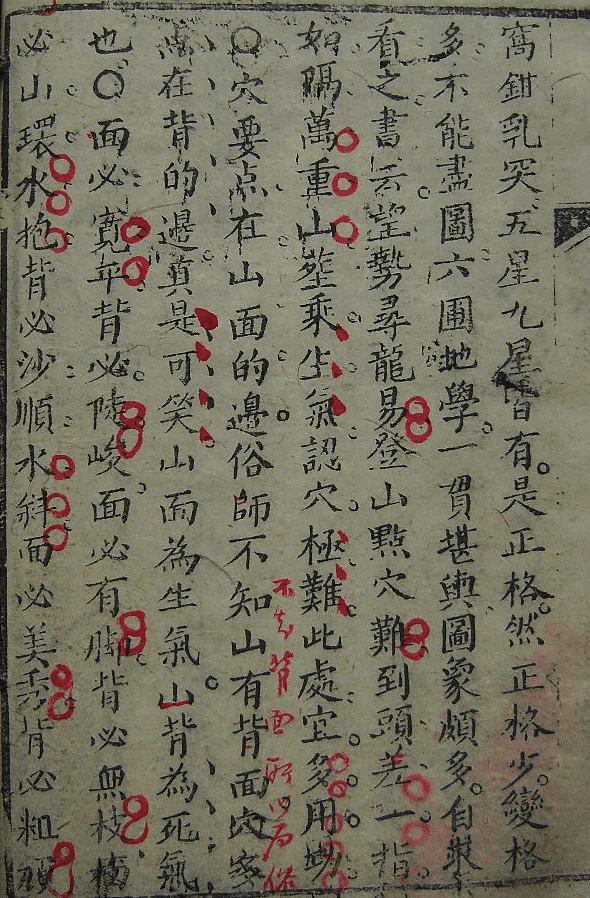 窩鉗乳突五星九星皆有是正格然正格少變格
多不能盡圖六圃地學一貫堪輿圖象頗多自取
看之書云望勢尋龍易登山點穴難到頭差一指
如隔萬重山葬乘生氣認穴極難此處宜多用功
○穴要点在山面的邊俗師不知山有背面穴多
点在背的邊真是可笑山面為生氣山背為死氣
也○面必寬平背必陡峻面必有脚背必無枝
必山環水抱背必沙順水斜面必美秀背必粗頑
不知背面所以為俗